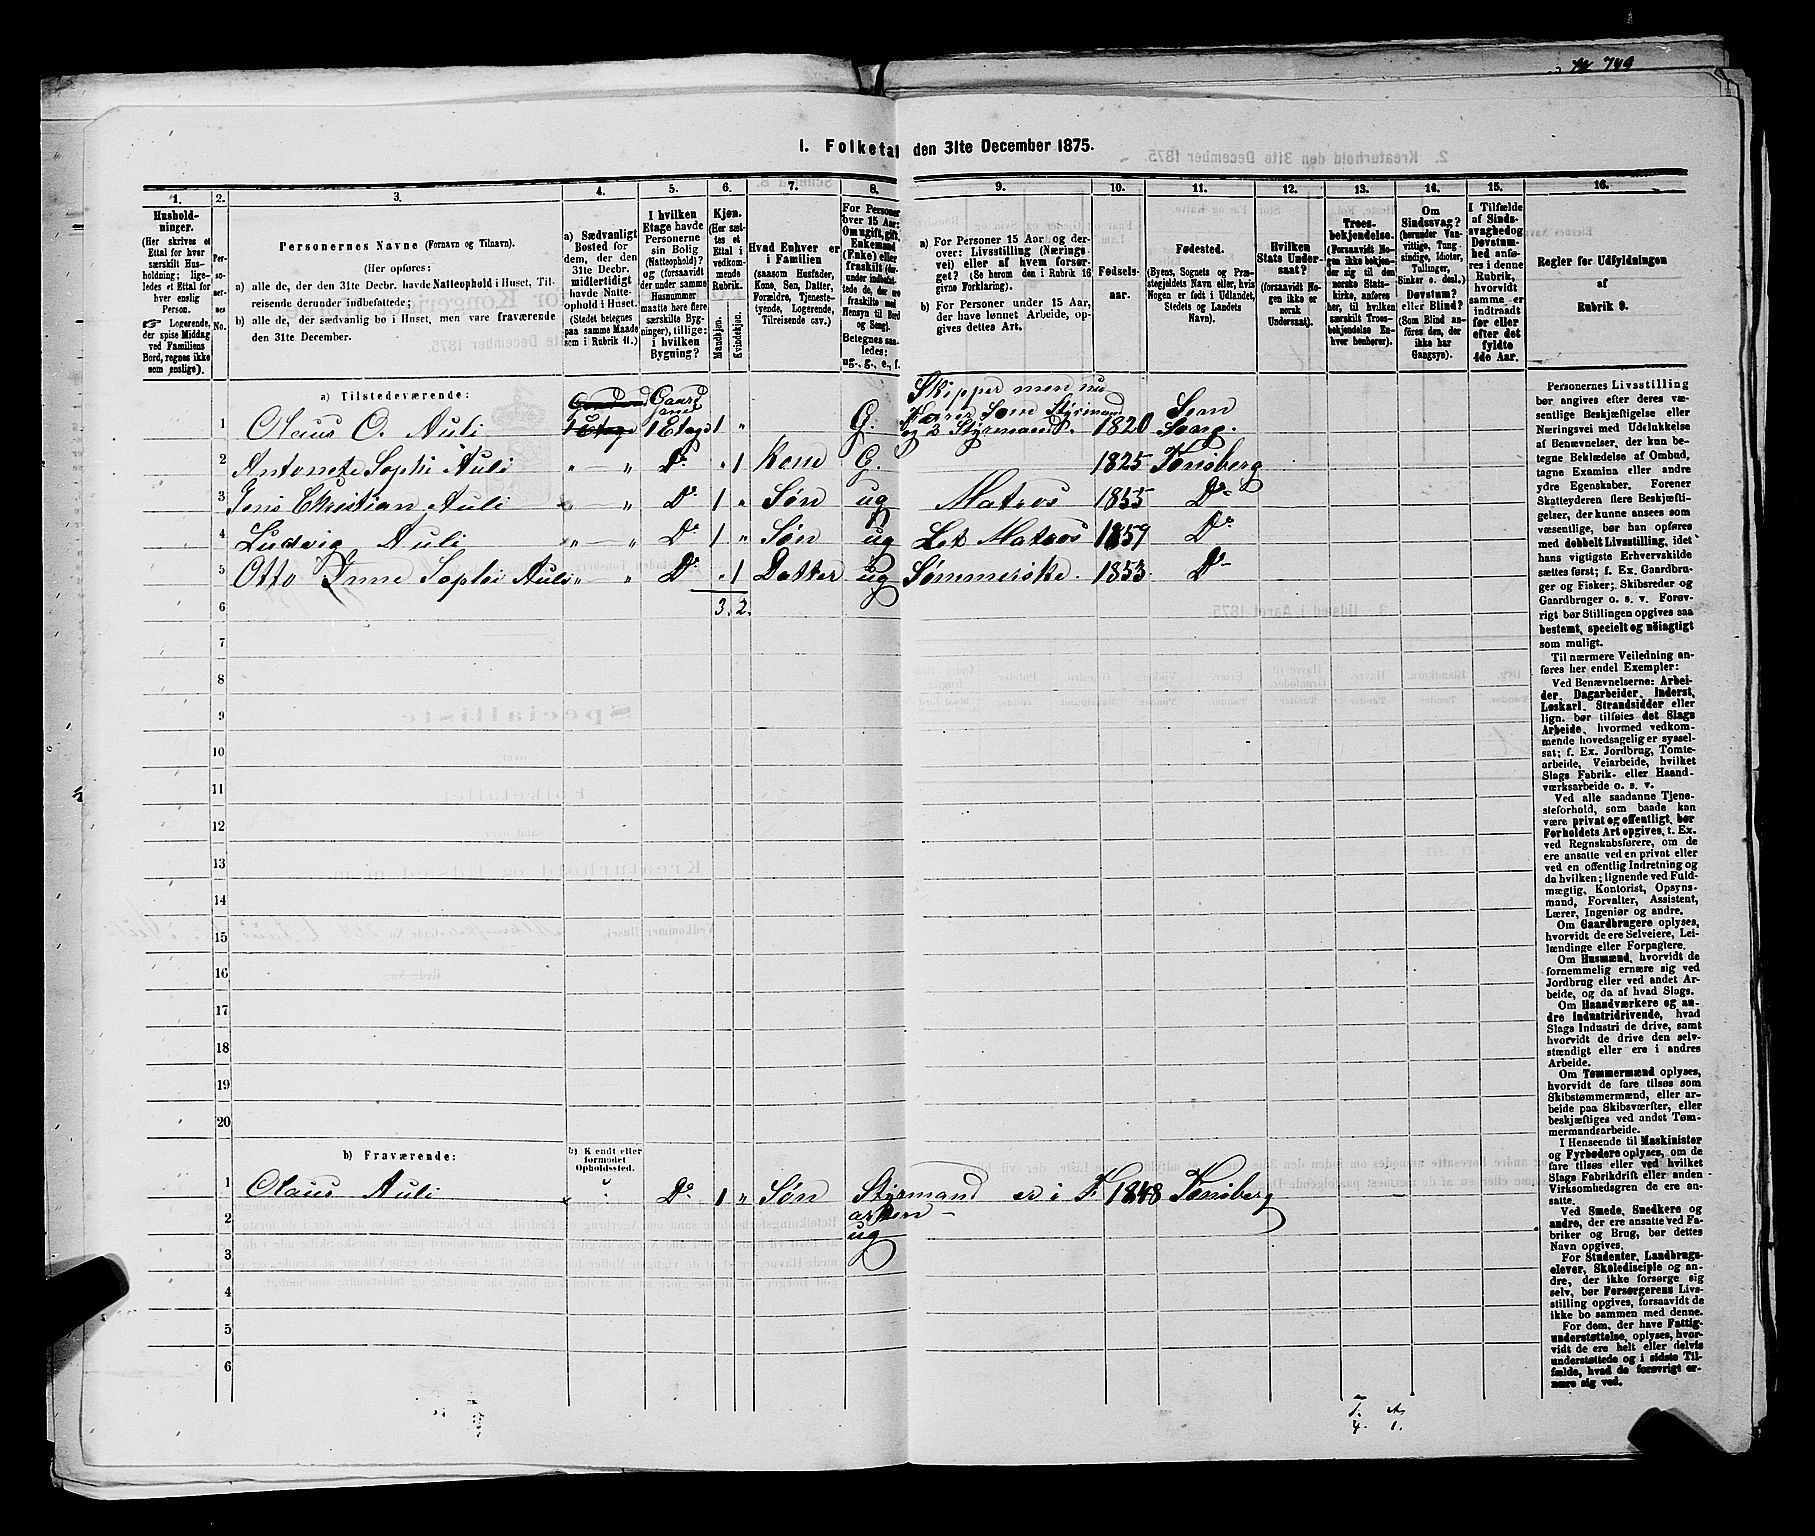 749
I. Folketal den 31te December 1875.
1. 2. 3. 4. 5. 6. 7. 8. 9. 10. 11. 12. 13. 14. 15. 16.
Hushold-
ninger.
(Her skrives et
Ettal for hver
særskilt Hus-
holdning; lige-
ledes et Ettal for
hver enslig
Person.
☞ Logerende,
der spise Middag
ved Familiens
Bord, regnes ikke
som enslige).
Per-
so-
ner-
nes
No.
Personernes Navne (Fornavn og Tilnavn).
(Her opføres:
a) alle de, der den 31te Decbr. havde Natteophold i Huset, Til-
reisende derunder indbefattede;
b) alle de, der sædvanlig bo i Huset, men vare fraværende
den 31te December.
a) Sædvanligt
Bosted for
dem, der den
31te Decbr.
midlertidigt
havde Natte-
ophold i Huset.
(Stedet betegnes
paa samme Maade
som i Rubrik 11.)
I hvilken
Etage havde
Personerne
sin Bolig
(Natteophold)?
og (forsaavidt
der under samme
Husnummer
maatte høre flere
særskilte Byg-
ninger), tillige:
i hvilken
Bygning?
Kjøn.
(Her sæt-
tes et
Ettal i
vedkom-
mende
Rubrik.
Mandkjøn.
Kvindekjøn.
Hvad Enhver er
i Familien
(saasom Husfader,
Kone, Søn, Datter,
Forældre, Tjeneste-
tyende, Logerende,
Tilreisende osv.)
For Personer
over 15 Aar:
Om ugift, gift,
Enkemand
(Enke) eller
fraskilt
Betegnes saa-
ledes:
ug., g., e., f.
a) For Personer 15 Aar og der-
over: Livsstilling (Nærings-
vei) eller af hvem forsør-
get? (Se herom den i Rubrik 16
givne Forklaring).
b) For Personer under 15 Aar,
der have lønnet Arbeide, op-
gives dettes Art.
Fødsels-
aar.
Fødested.
(Byens, Sognets og Præ-
stegjeldets Navn eller, hvis
Nogen er født i Udlandet,
Stedets og Landets
Navn).
Hvilken
Stats Under-
saat?
(forsaavidt No-
gen ikke er
norsk
Undersaat).
Troes-
bekjendelse.
(Forsaavidt No-
gen ikke bekjen-
der sig til den
norske Stats-
kirke, anføres
her, til hvilken
særskilt Troes-
bekjendelse En-
hver henhører).
Om
Sindssvag?
(herunder Van-
vittige, Tung-
sindige, Idioter,
Tullinger,
Sinker o. desl.)
Døvstum?
eller Blind?
(Som Blind an-
føres den, der
ikke har
Gangsyn).
I Tilfælde
af Sinds-
svaghed og
Døvstum-
hed anfø-
res i denne
Rubrik,
hvorvidt
samme er
indtraadt
før eller
efter det
fyldte
4de Aar.
Regler for Udfyldningen
af
Rubrik 9.
a) Tilstedeværende:
Gaard Skipper men nu
1 Olaus O. Auli 1 Etage 1 " G. farer Som Styrmand og 2 Styrmand. 1820 Sem Song.
2 Antonete Sophi Auli " — " Do " 1 Kone G. 1825 Tønsberg
3 Jens Christian Auli " — " Do 1 " Søn ug Matros 1855 Do
4 Ludvig Auli " — " Do 1 " Søn ug Let Matros 1859 Do
5 Otto Inne Sophi Auli " — " Do " 1 Datter ug Sømmerske. 1853 Do
6 3. 2.
7
8
9
10
11
12
13
14
15
16
17
18
19
20
b) Fraværende:
b) Kendt eller
formodet
Opholdssted.
1 Olaus Auli Do 1 " Søn Styrmand er i F 1848 Tønsberg
2 arten
ug
3
4
5
6
Personernes Livsstilling
bør angives efter deres væ-
sentlige Beskjæftigelse eller
Næringsvei med Udelukkelse
af Benævnelser, der kun be-
tegne Beklædelse af Ombud,
tagne Examina eller andre
ydre Egenskaber. Forener
Skatteyderen flere Beskjæfti-
gelser, der kunne ansees som
væsentlige, bør han opføres
med dobbelt Livsstilling, idet
hans vigtigste Erhvervskilde
sættes først; f. Ex. Gaardbru-
ger og Fisker; Skibsreder og
Gaardbruger o. s. v. Forøv-
rigt bør Stillingen opgives saa
bestemt, specielt og nöiagtigt
som muligt.
Til nærmere Veiledning an-
føres her endel Exempler:
Ved Benævnelserne: Arbei-
der, Dagarbeider, Inderst,
Løskarl, Strandsidder eller
lign. bør tilføies det Slags
Arbeide, hvormed vedkom-
mende hovedsagelig er syssel-
sat; f. Ex. Jordbrug, Tomte-
arbeide, Veiarbeide, hvilket
Slags Fabrik- eller Haand-
værksarbeide o. s. v.
Ved alle saadanne Tjene-
steforhold, som baade kan
være privat og offentligt, bør
Forholdets Art opgives, t. Ex.
ved Regnskabsførere, om de
ere ansatte ved en privat eller
ved en offentlig Indretning og
da hvilken; lignende ved Fuld-
mægtig, Kontorist, Opsyns-
mand, Forvalter, Assistent,
Lærer, Ingeniør og andre.
Om Gaardbrugere oplyses,
hvorvidt de ere Selveiere, Lei-
lændinge eller Forpagtere.
Om Husmænd, hvorvidt de
fornemmelig ernære sig ved
Jordbrug eller ved andet Ar-
beide, og da af hvad Slags.
Om Haandværkere og an-
dre Industridrivende, hvad
Slags Industri de drive, samt
hvorvidt de drive den selv-
stændigt eller ere i andres
Arbeide.
Om Tømmermænd oplyses,
hvorvidt de fare tilsøs som
Skibstømmermænd, eller ar-
beide paa Skibsværfter, eller
beskjæftiges ved andet Tøm-
mermandsarbeide.
I Henseende til Maskinister
og Fyrbødere oplyses, om de
fare tilsøs eller ved hvilket
Slags Fabrikdrift eller anden
Virksomhedsgren de ere an-
satte.
Ved Smede, Snedkere og
andre, der ere ansatte ved Fa-
briker og Brug, bør dettes
Navn opgives.
For Studenter, Landbrugs-
elever, Skoledisciple og an-
dre, der ikke forsørge sig
selv, bør Forsørgerens Livs-
stilling opgives, forsaavidt de
ikke bo sammen med denne.
For dem, der have Fattig-
understøttelse, oplyses, hvor-
vidt de ere helt eller delvis
understøttede og i sidste Til-
fælde, hvad de forøvrigt er-
nære sig ved.
4. 1.